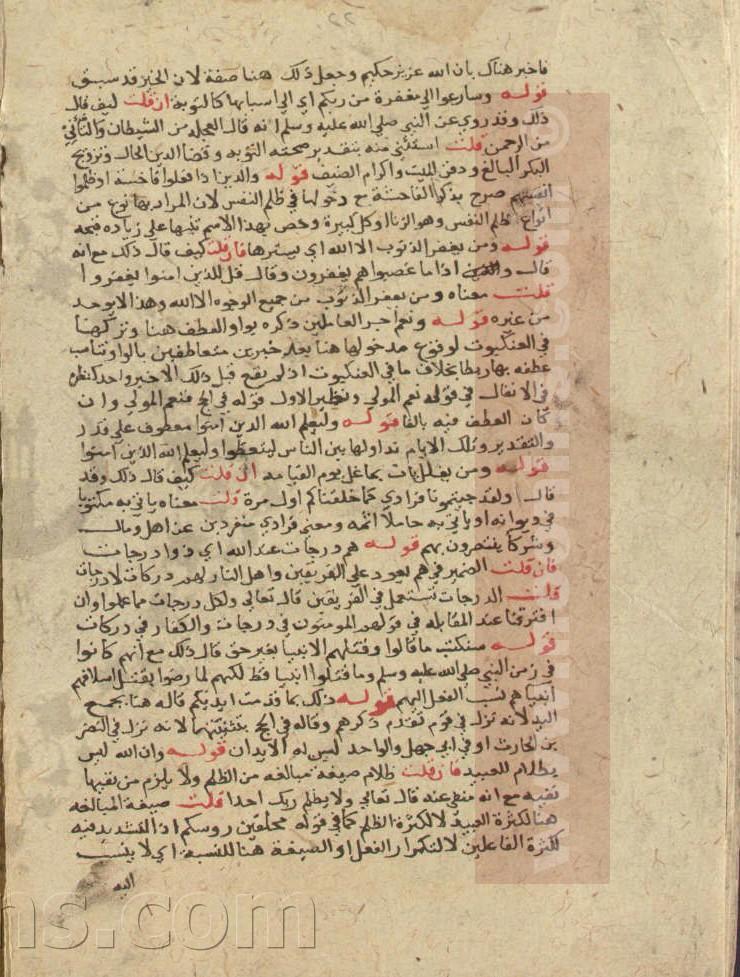 فاخبر هناك بان الله عزيز حكيم وجعل ذلك هنا صفة لان الخبر قد سبق
قوله وسارعوا الي مغفرة من ربكم اي الي اسبابها كالتوبة ان قلت كيف قال
ذلك وقد روي عن النبي صلي الله عليه وسلم انه قال العجله من الشيطان والتأني
من الرحمن قلت استثني منه بتقدير صحته التوبه وقضا الدين الحال وتزويج
البكر البالغ ودفن الميت واكرام الضيف قوله والذين اذا فعلوا فاحشة او ظلموا
انفسهم صرح بذكر الفاحشة مع دخولها في ظلم النفس لان المراد بها نوع من
انواع ظلم النفس وهو الزنا او كل كبيرة وخص بهذا الاسم تنبيها علي زياده قبحه
قوله ومن يغفر الذنوب الا الله اي يسترها فان قلت كيف قال ذلك مع انه
قال واذا ما غضبوا هم يغفرون وقال قل للذين امنوا يغفروا
قلت معناه ومن يغفر الذنوب من جميع الوجوه الا الله وهذا لا يوجد
من غيره قوله ونعم اجر العاملين ذكره بواو العطف هنا وتركها
في العنكبوت لوقوع مدخولها هنا بعد خبرين متعاطفين بالواو فناسب
عطفه بها ربطا بخلاف ما في العنكبوت اذ لم يقع قبل ذلك الا خبر واحد كنظيره
في الانفال في قوله نعم المولي ونظير الاول قوله في الحج فنعم المولي وان
كان العطف فيه بالفا قوله وليعلم الله الذين آمنوا معطوف علي مقدر
والتقدير وتلك الايام نداولها بين الناس ليتعظوا وليعلم الله الذين آمنوا
قوله ومن يغلل يات بما غل يوم القيامه ان قلت كيف قال ذلك وقد
قال ولقد جيتمونا فرادي كما خلقناكم اول مرة قلت معناه ياتي به مكتوبا
في ديوانه او ياتي به حاملا اثمه ومعني فرادي منفردين عن اهل ومال
وشركا ينتصرون بهم قوله هم درجات عند الله اي ذووا درجات
فان قلت الضمير في هم يعود علي الفريقين واهل النار لهم دركات لا درجات
قلت الدرجات تستعمل في الفريقين قال تعالي ولكل درجات مما عملوا وان
افترقتا عند المقابله في قولهم المومنون في درجات والكفار في دركات
قوله سنكتب ما قالوا وقتلهم الانبيا بغير حق قال ذلك مع انهم كانوا
في زمن النبي صلي الله عليه وسلم وما قتلوا انبيا قط لكنهم لما رضوا بقتل اسلافهم
انبياهم نسب الفعل اليهم قوله ذلك بما قدمت ايديكم قاله هنا بجمع
اليد لانه نزل في قوم تقدم ذكرهم وقاله في الحج بتثنيتهما لانه نزل في النضر
بن الحارث او في ابي جهل والواحد ليس له الا يدان قوله وان الله ليس
بظلام للعبيد فان قلت ظلام صيغة مبالغه من الظلم ولا يلزم من نفيها
نفيه مع انه منفي عنه قال تعالي ولا يظلم ربك احدا قلت صيغة المبالغه
هنا لكثرة العبيد لا لكثرة الظلم كما في قوله محلقين روسكم اذ التشديد فيه
لكثرة الفاعلين لا لتكرار الفعل او الصيغة هنا للنسبة اي لا ينسب
اليه
ns.com